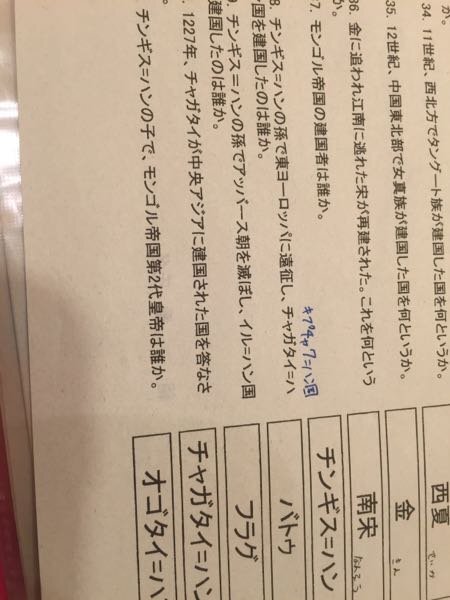 か。
34. 11世紀、西北方でタングート族が建国した国を何というか。
西夏
せいか
35. 12世紀、中国東北部で女真族が建国した国を何というか。
金
きん
36. 金に追われ江南に逃れた宋が再建された。これを何という
か。
南宋
なんそう
7. モンゴル帝国の建国者は誰か。
チンギス=ハン
キプチャク=ハン国
8. チンギス=ハンの孫で東ヨーロッパに遠征し、チャガタイ=ハ
ン国を建国したのは誰か。
バトゥ
9. チンギス=ハンの孫でアッバース朝を滅ぼし、イル=ハン国
建国したのは誰か。
フラグ
1227年、チャガタイが中央アジアに建国された国を答なさ
チャガタイ=ハン
チンギス=ハンの子で、モンゴル帝国第2代皇帝は誰か。
オゴタイ=ハ